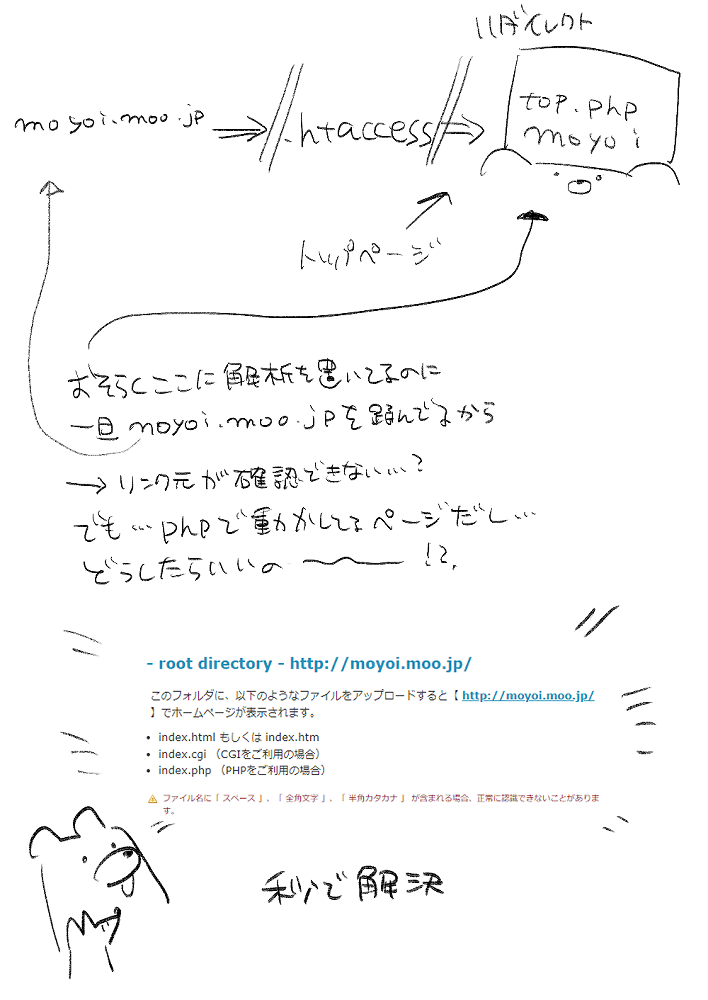 リダイレクト
moyoi.moo.jp ⇒ .htaccess ⇒ top.php
moyoi
トップページ
おそらくここに解析を置いてるのに
一旦moyoi.moo.jpを踏んでるから
→リンク元が確認できない…?
でも…phpで動かしてるページだし…
どうしたらいいの〜〜!?
- root directory - http://moyoi.moo.jp/
このフォルダに、以下のようなファイルをアップロードすると【 http://moyoi.moo.jp/
】でホームページが表示されます。
• index.html もしくは index.htm
• index.cgi （CGIをご利用の場合）
• index.php （PHPをご利用の場合）
ファイル名に「 スペース 」、「 全角文字 」、「 半角カタカナ 」 が含まれる場合、正常に認識できないことがありま
す。
秒で解決